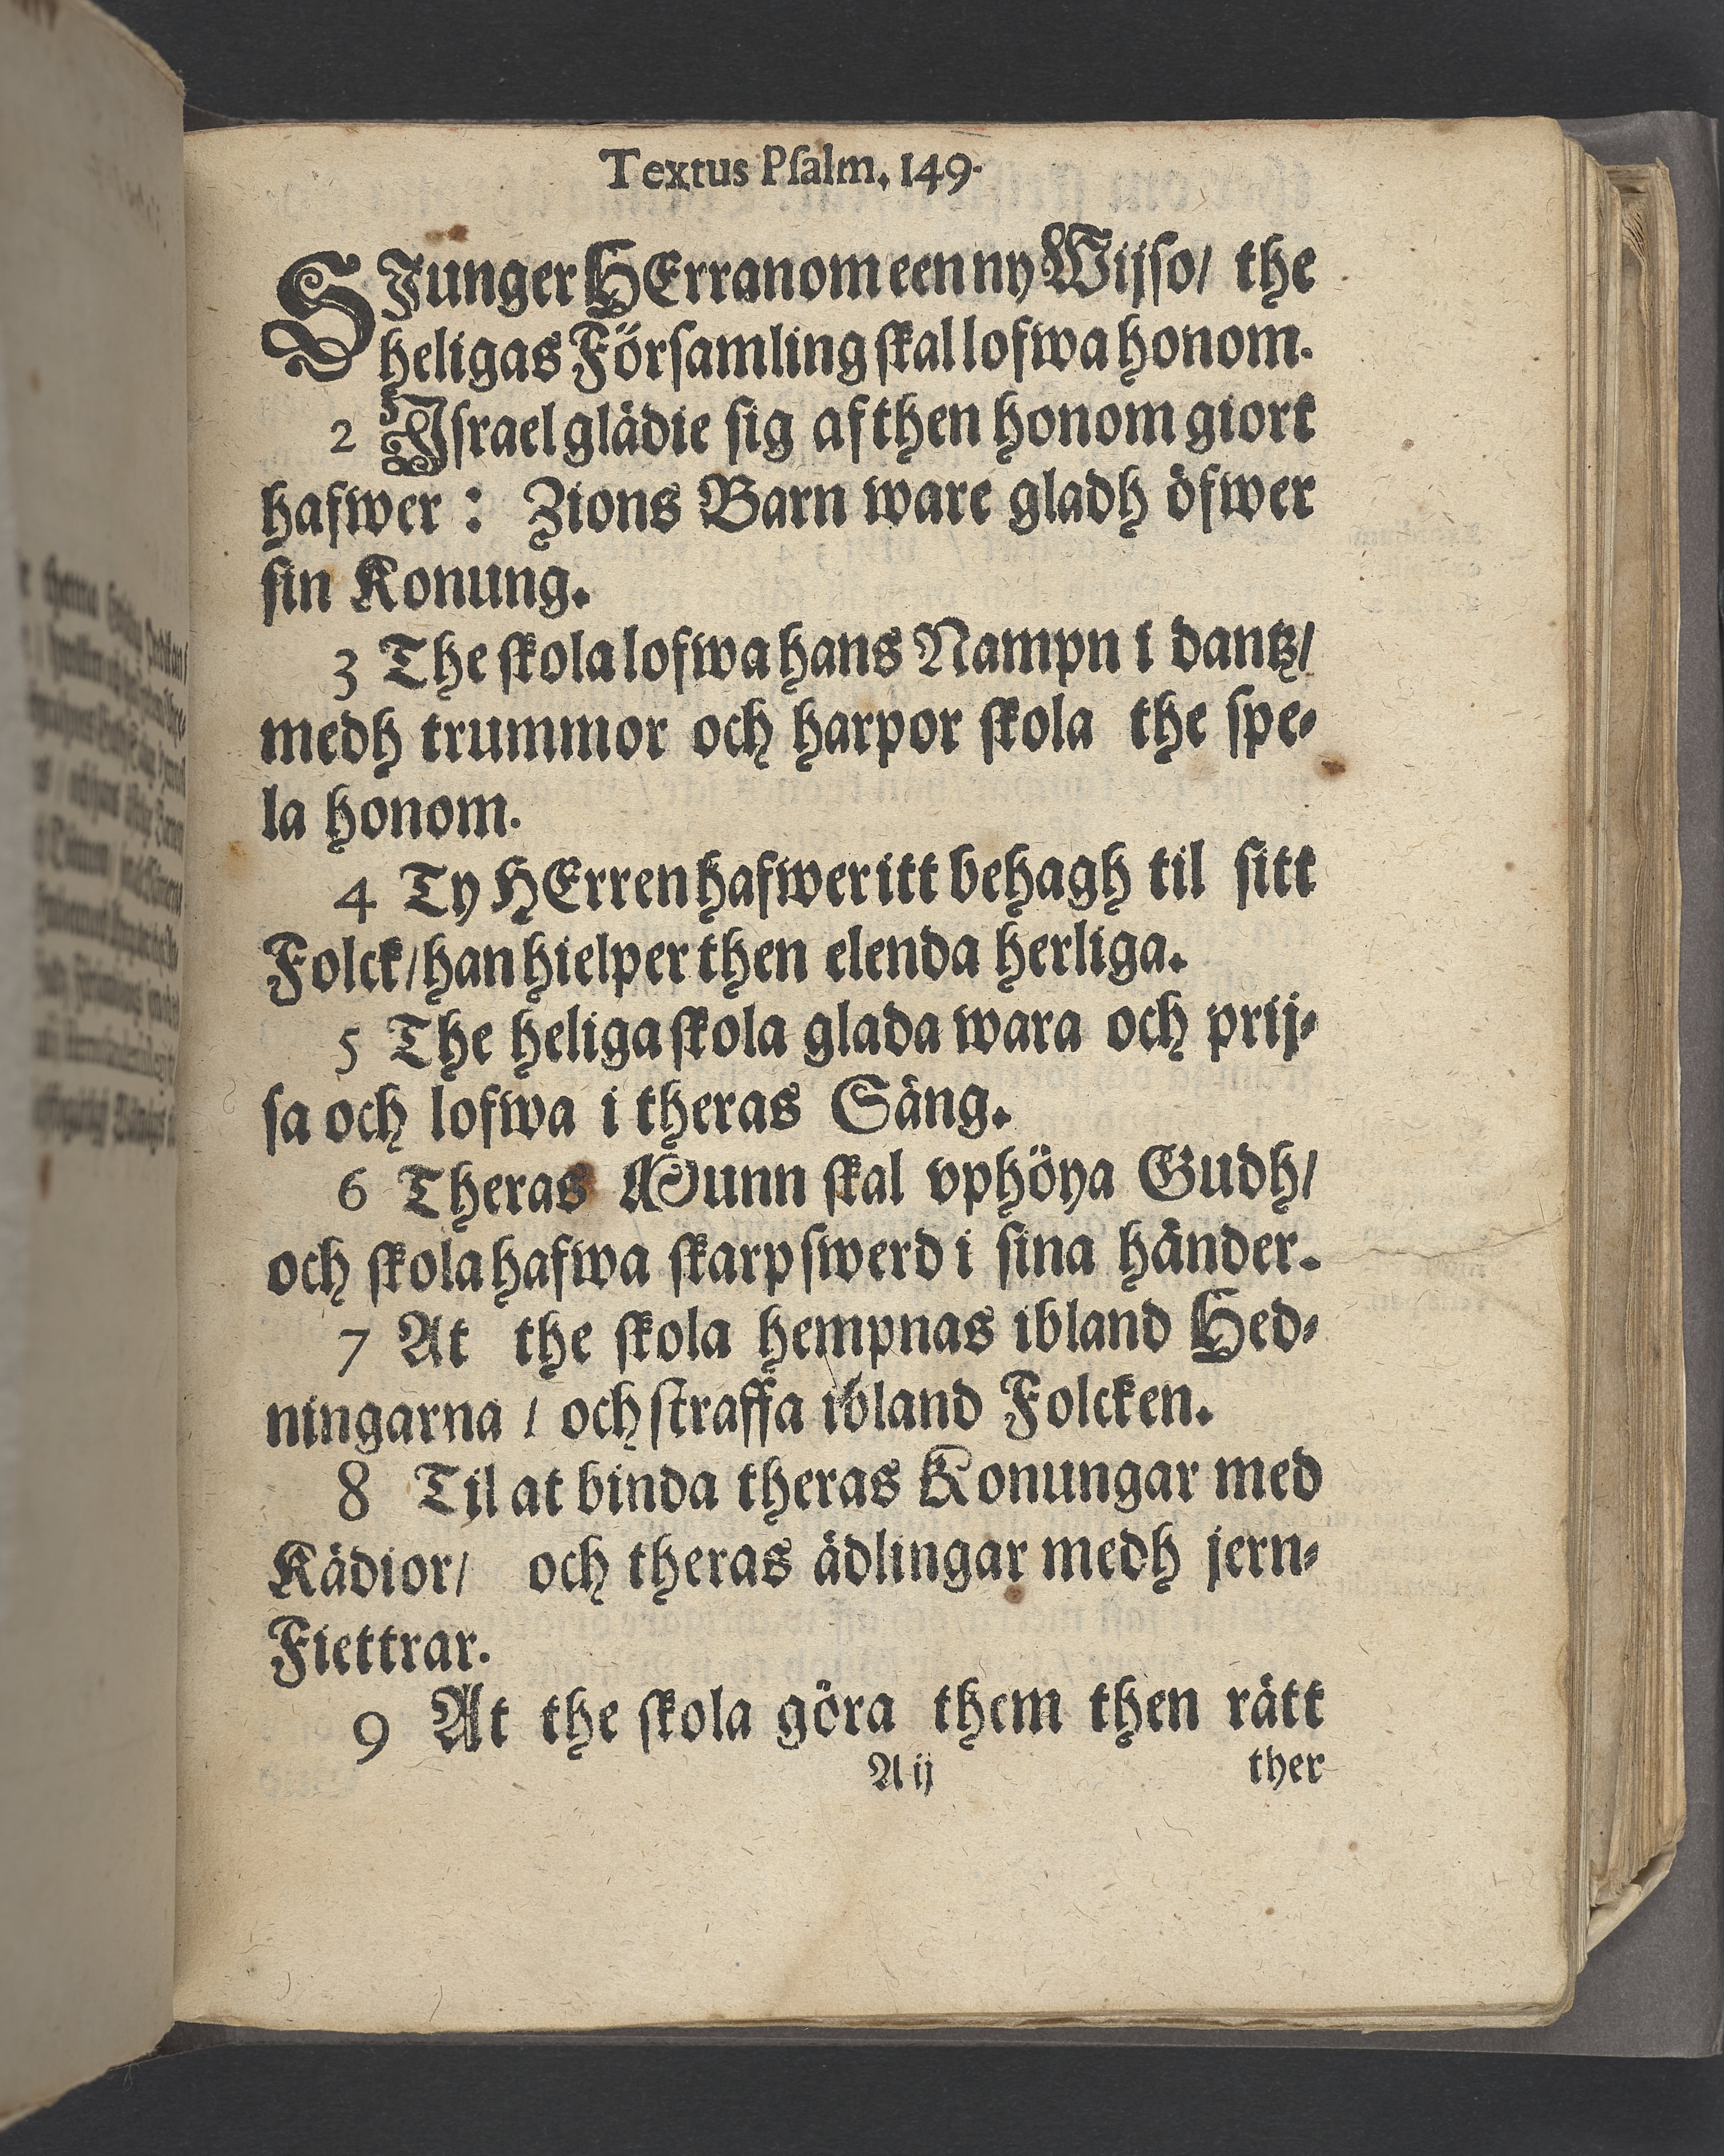 Textus Psalm. 149.
SJunger HErranom een ny Wijso/ the
heligas Församling skal lofwa honom.
2 Israel glädie sig af then honom giort
hafwer : Zions Barn ware gladh öfwer
sin Konung.
3 The skola lofwa hans Nampn i dantz/
medh trummor och harpor skola the spe-
la honom.
4 Ty HErren hafwer itt behagh til sitt
Folck/ han hielper then elenda herliga.
5 The heliga skola glada wara och prij-
sa och lofwa i theras Säng.
6 Theras Munn skal vphöya Gudh/
och skola hafwa skarp swerd i sina händer.
7 At the skola hempnas ibland Hed-
ningarna / och straffa ibland Folcken.
8 Til at binda theras Konungar med
Kädior/ och theras ädlingar medh jern-
Fiettrar.
9 At the skola göra them then rätt
A ij ther